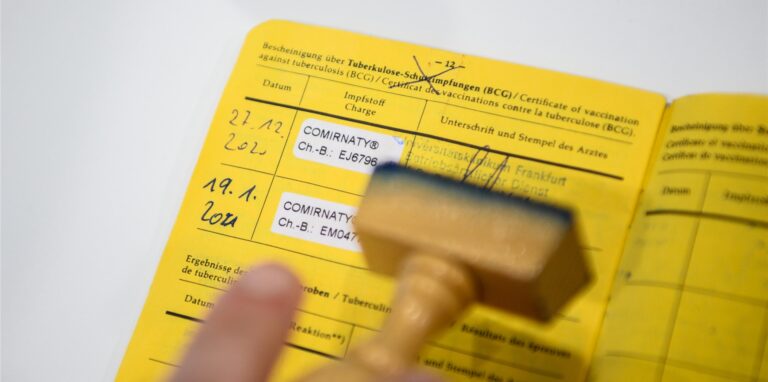 - 12 -
Bescheinigung über Tuberkulose-Schutzimpfungen (BCG) / Certificate of vaccination
against tuberculosis (BCG) / Certificat des vaccinations contre la tuberculose (BCG).
Datum
Impfstoff
Charge
Unterschrift und Stempel des Arztes
27.12.
2020
COMIRNATY®
Ch.-B.: EJ6796
Universitätsklinikum Frankfurt
Betriebsärztlicher Dienst
19.1.
2021
COMIRNATY
Ch.-B.: EM047
Ergebnisse de
roben / Tuberculin
de tuberculi
Résultats des épreuves
Datum
Reaktion**)
und Stempel des Arztes
Bescheinigung über
Certificate of vaccinati
Certificat de vaccinat
Datum
Impfstoff